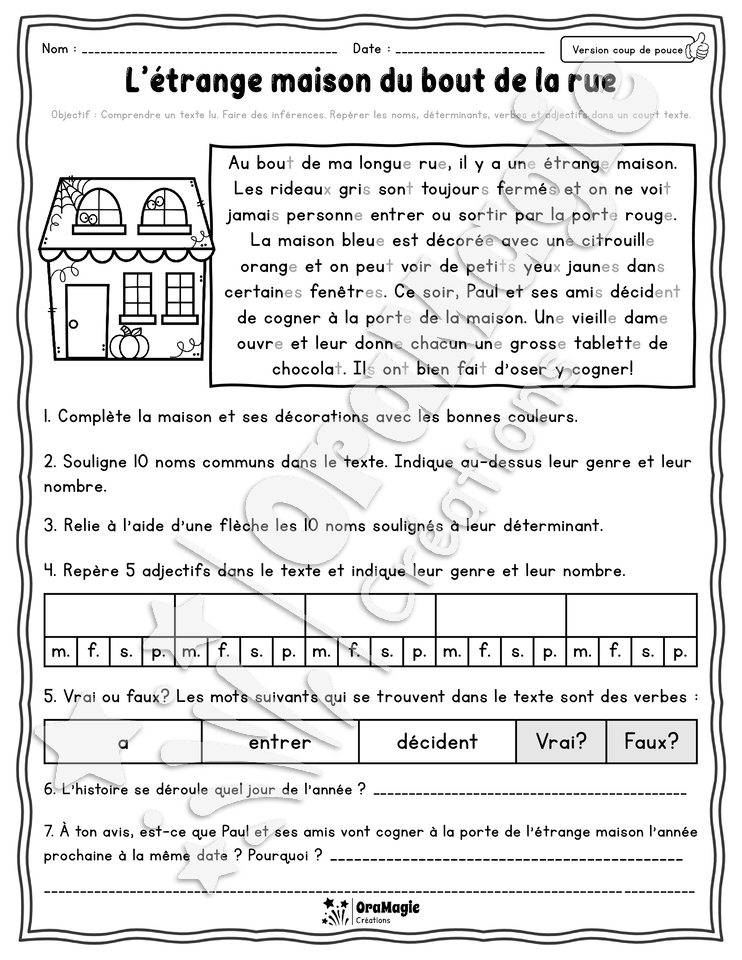 Nom : ________________________ Date : ________________ Version coup de pouce
L'étrange maison du bout de la rue
Objectif : Comprendre un texte lu. Faire des inférences. Repérer les noms, déterminants, verbes et adjectifs dans un court texte.
Au bout de ma longue rue, il y a une étrange maison.
Les rideaux gris sont toujours fermés et on ne voit
jamais personne entrer ou sortir par la porte rouge.
La maison bleue est décorée avec une citrouille
orange et on peut voir de petits yeux jaunes dans
certaines fenêtres. Ce soir, Paul et ses amis décident
de cogner à la porte de la maison. Une vieille dame
ouvre et leur donne chacun une grosse tablette de
chocolat. Ils ont bien fait d'oser y cogner!
1. Complète la maison et ses décorations avec les bonnes couleurs.
2. Souligne 10 noms communs dans le texte. Indique au-dessus leur genre et leur
nombre.
3. Relie à l'aide d'une flèche les 10 noms soulignés à leur déterminant.
4. Repère 5 adjectifs dans le texte et indique leur genre et leur nombre.
m. f. s. p. m. f. s. p. m. f. s. p. m. f. s. p. m. f. s. p.
5. Vrai ou faux? Les mots suivants qui se trouvent dans le texte sont des verbes :
a entrer décident Vrai? Faux?
6. L'histoire se déroule quel jour de l'année ? ________________________________
7. À ton avis, est-ce que Paul et ses amis vont cogner à la porte de l'étrange maison l'année
prochaine à la même date ? Pourquoi ? ____________________________________
OraMagie
Créations
OraMagie
Créations